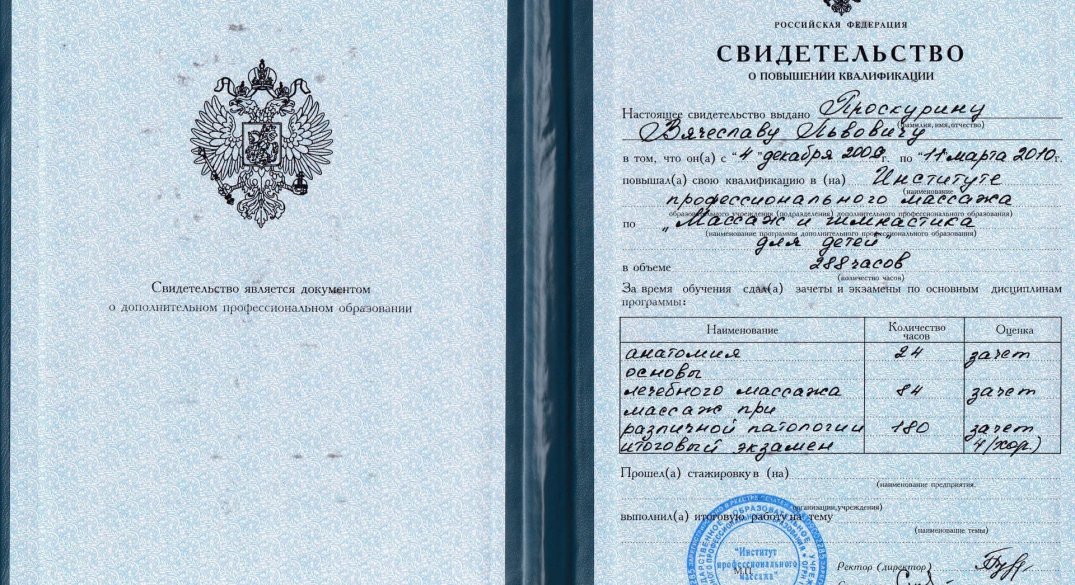 Свидетельство является документом
о дополнительном профессиональном образовании
РОССИЙСКАЯ ФЕДЕРАЦИЯ
СВИДЕТЕЛЬСТВО
О ПОВЫШЕНИИ КВАЛИФИКАЦИИ
Настоящее свидетельство выдано Проскурину
(фамилия, имя, отчество)
Вячеславу Львовичу
в том, что он(а) с "4" декабря 2009г. по "11" марта 2010г.
повышал(а) свою квалификацию в (на) Институте
(наименование
профессионального массажа
образовательного учреждения (подразделения) дополнительного профессионального образования)
по „Массаж и гимнастика
(наименование программы дополнительного профессионального образования)
для детей"
в объеме 288 часов
(количество часов)
За время обучения сдал(а) зачеты и экзамены по основным дисциплинам
программы:
Наименование Количество часов Оценка
анатомия 24 зачет
основы
лечебного массажа 84 зачет
массаж при
различной патологии 180 зачет
итоговый экзамен 4 (хор.)
Прошел(а) стажировку в (на)
(наименование предприятия,
организации, учреждения)
выполнил(а) итоговую работу на тему
(наименование темы)
"Институт
профессионального
массажа"
М.П.
Ректор (директор)